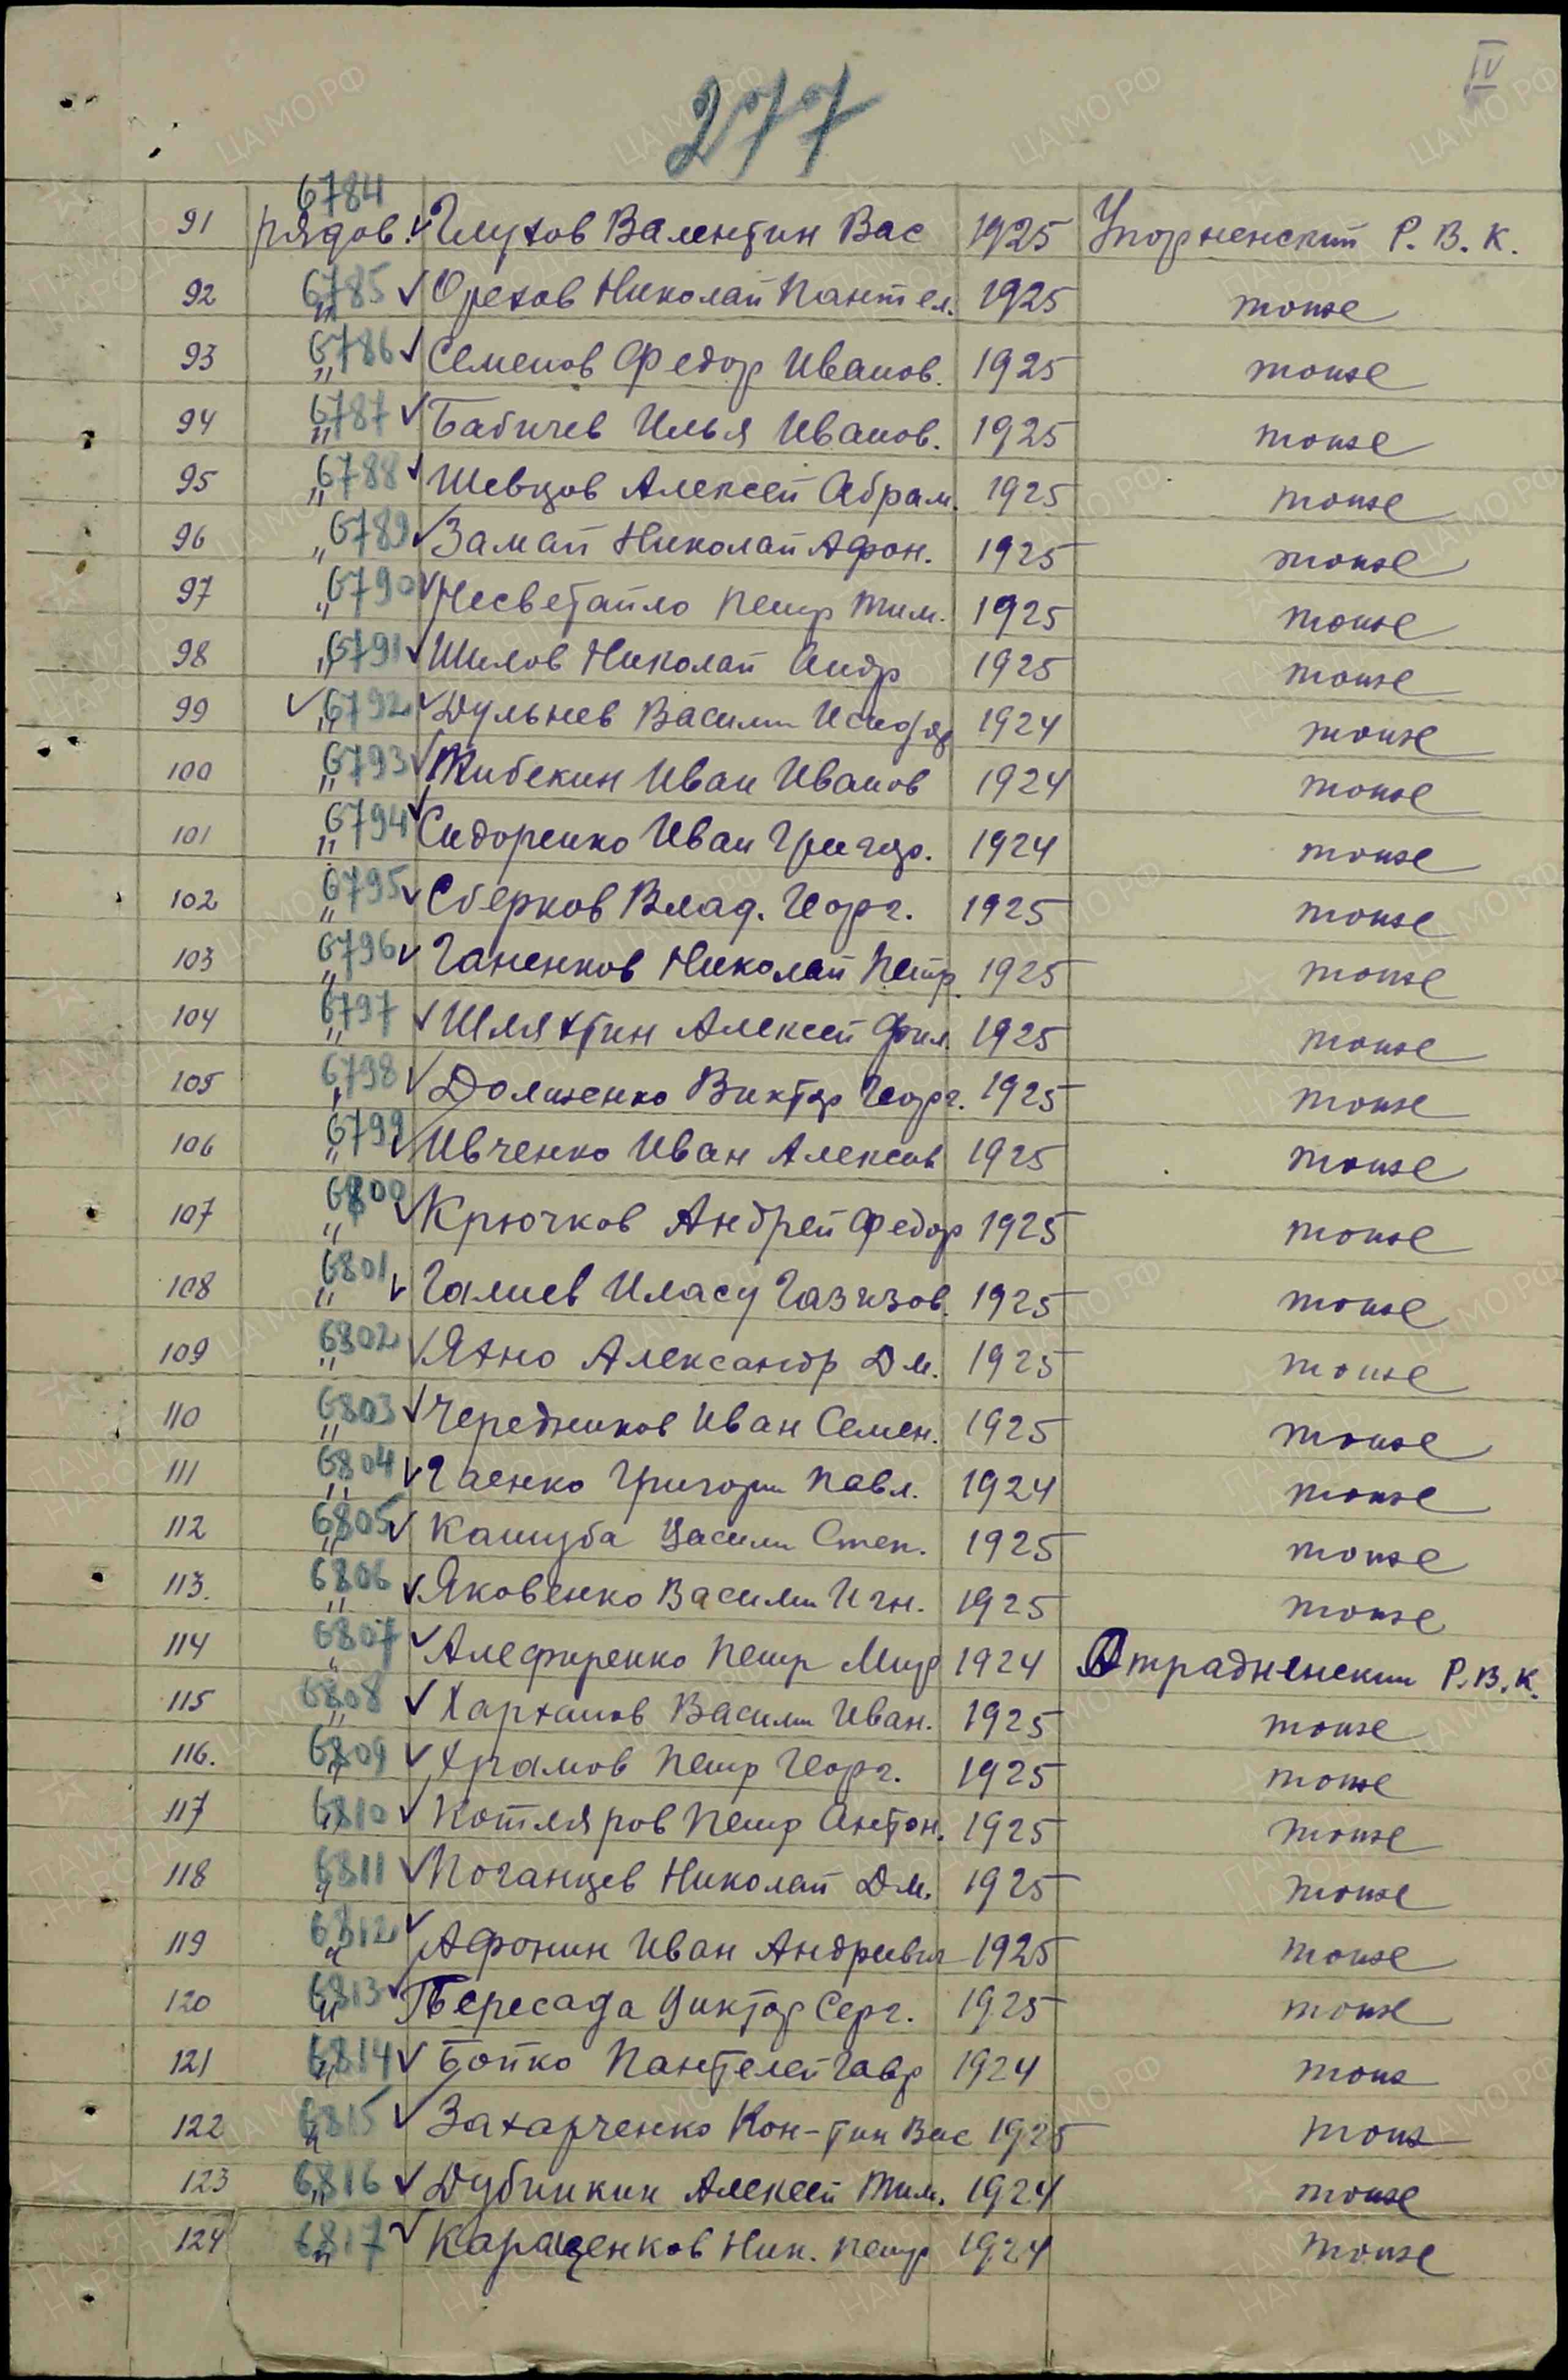 IV
277
6784
91 рядов. Глухов Валентин Вас 1925 Упорненский Р. В. К.
92 6785 " Орехов Николай Пантел. 1925 тоже
93 6786 " Семенов Федор Иванов. 1925 тоже
94 6787 " Бабичев Илья Иванов. 1925 тоже
95 6788 " Шевцов Алексей Абрам. 1925 тоже
96 6789 " Замай Николай Афон. 1925 тоже
97 6790 " Несветайло Петр Тим. 1925 тоже
98 6791 " Шилов Николай Андр 1925 тоже
99 6792 " Дульнев Василий Исидор 1924 тоже
100 6793 " Жибекин Иван Иванов 1924 тоже
101 6794 " Сидоренко Иван Григор. 1924 тоже
102 6795 " Сверков Влад. Георг. 1925 тоже
103 6796 " Ганенков Николай Петр. 1925 тоже
104 6797 " Шляхтин Алексей Фил. 1925 тоже
105 6798 " Долженко Виктор Георг. 1925 тоже
106 6799 " Ивченко Иван Алексов 1925 тоже
107 6800 " Крючков Андрей Федор 1925 тоже
108 6801 " Галиев Иласу Газизов. 1925 тоже
109 6802 " Яхно Александр Дм. 1925 тоже
110 6803 " Чередников Иван Семен. 1925 тоже
111 6804 " Гаенко Григорий Павл. 1924 тоже
112 6805 " Кашуба Василий Степ. 1925 тоже
113. 6806 " Яковенко Василий Игн. 1925 тоже
114 6807 " Алефиренко Петр Митр 1924 Отрадненский Р. В. К.
115 6808 " Харханов Василий Иван. 1925 тоже
116. 6809 " Храмов Петр Георг. 1925 тоже
117 6810 " Котляров Петр Антон. 1925 тоже
118 6811 " Поганцев Николай Дм. 1925 тоже
119 6812 " Афонин Иван Андреевич 1925 тоже
120 6813 " Пересада Виктор Серг. 1925 тоже
121 6814 " Бойко Пантелей Гавр 1924 тоже
122 6815 " Захарченко Кон-тин Вас 1925 тоже
123 6816 " Дубинкин Алексей Тим. 1924 тоже
124 6817 " Каращенков Ник. Петр 1924 тоже